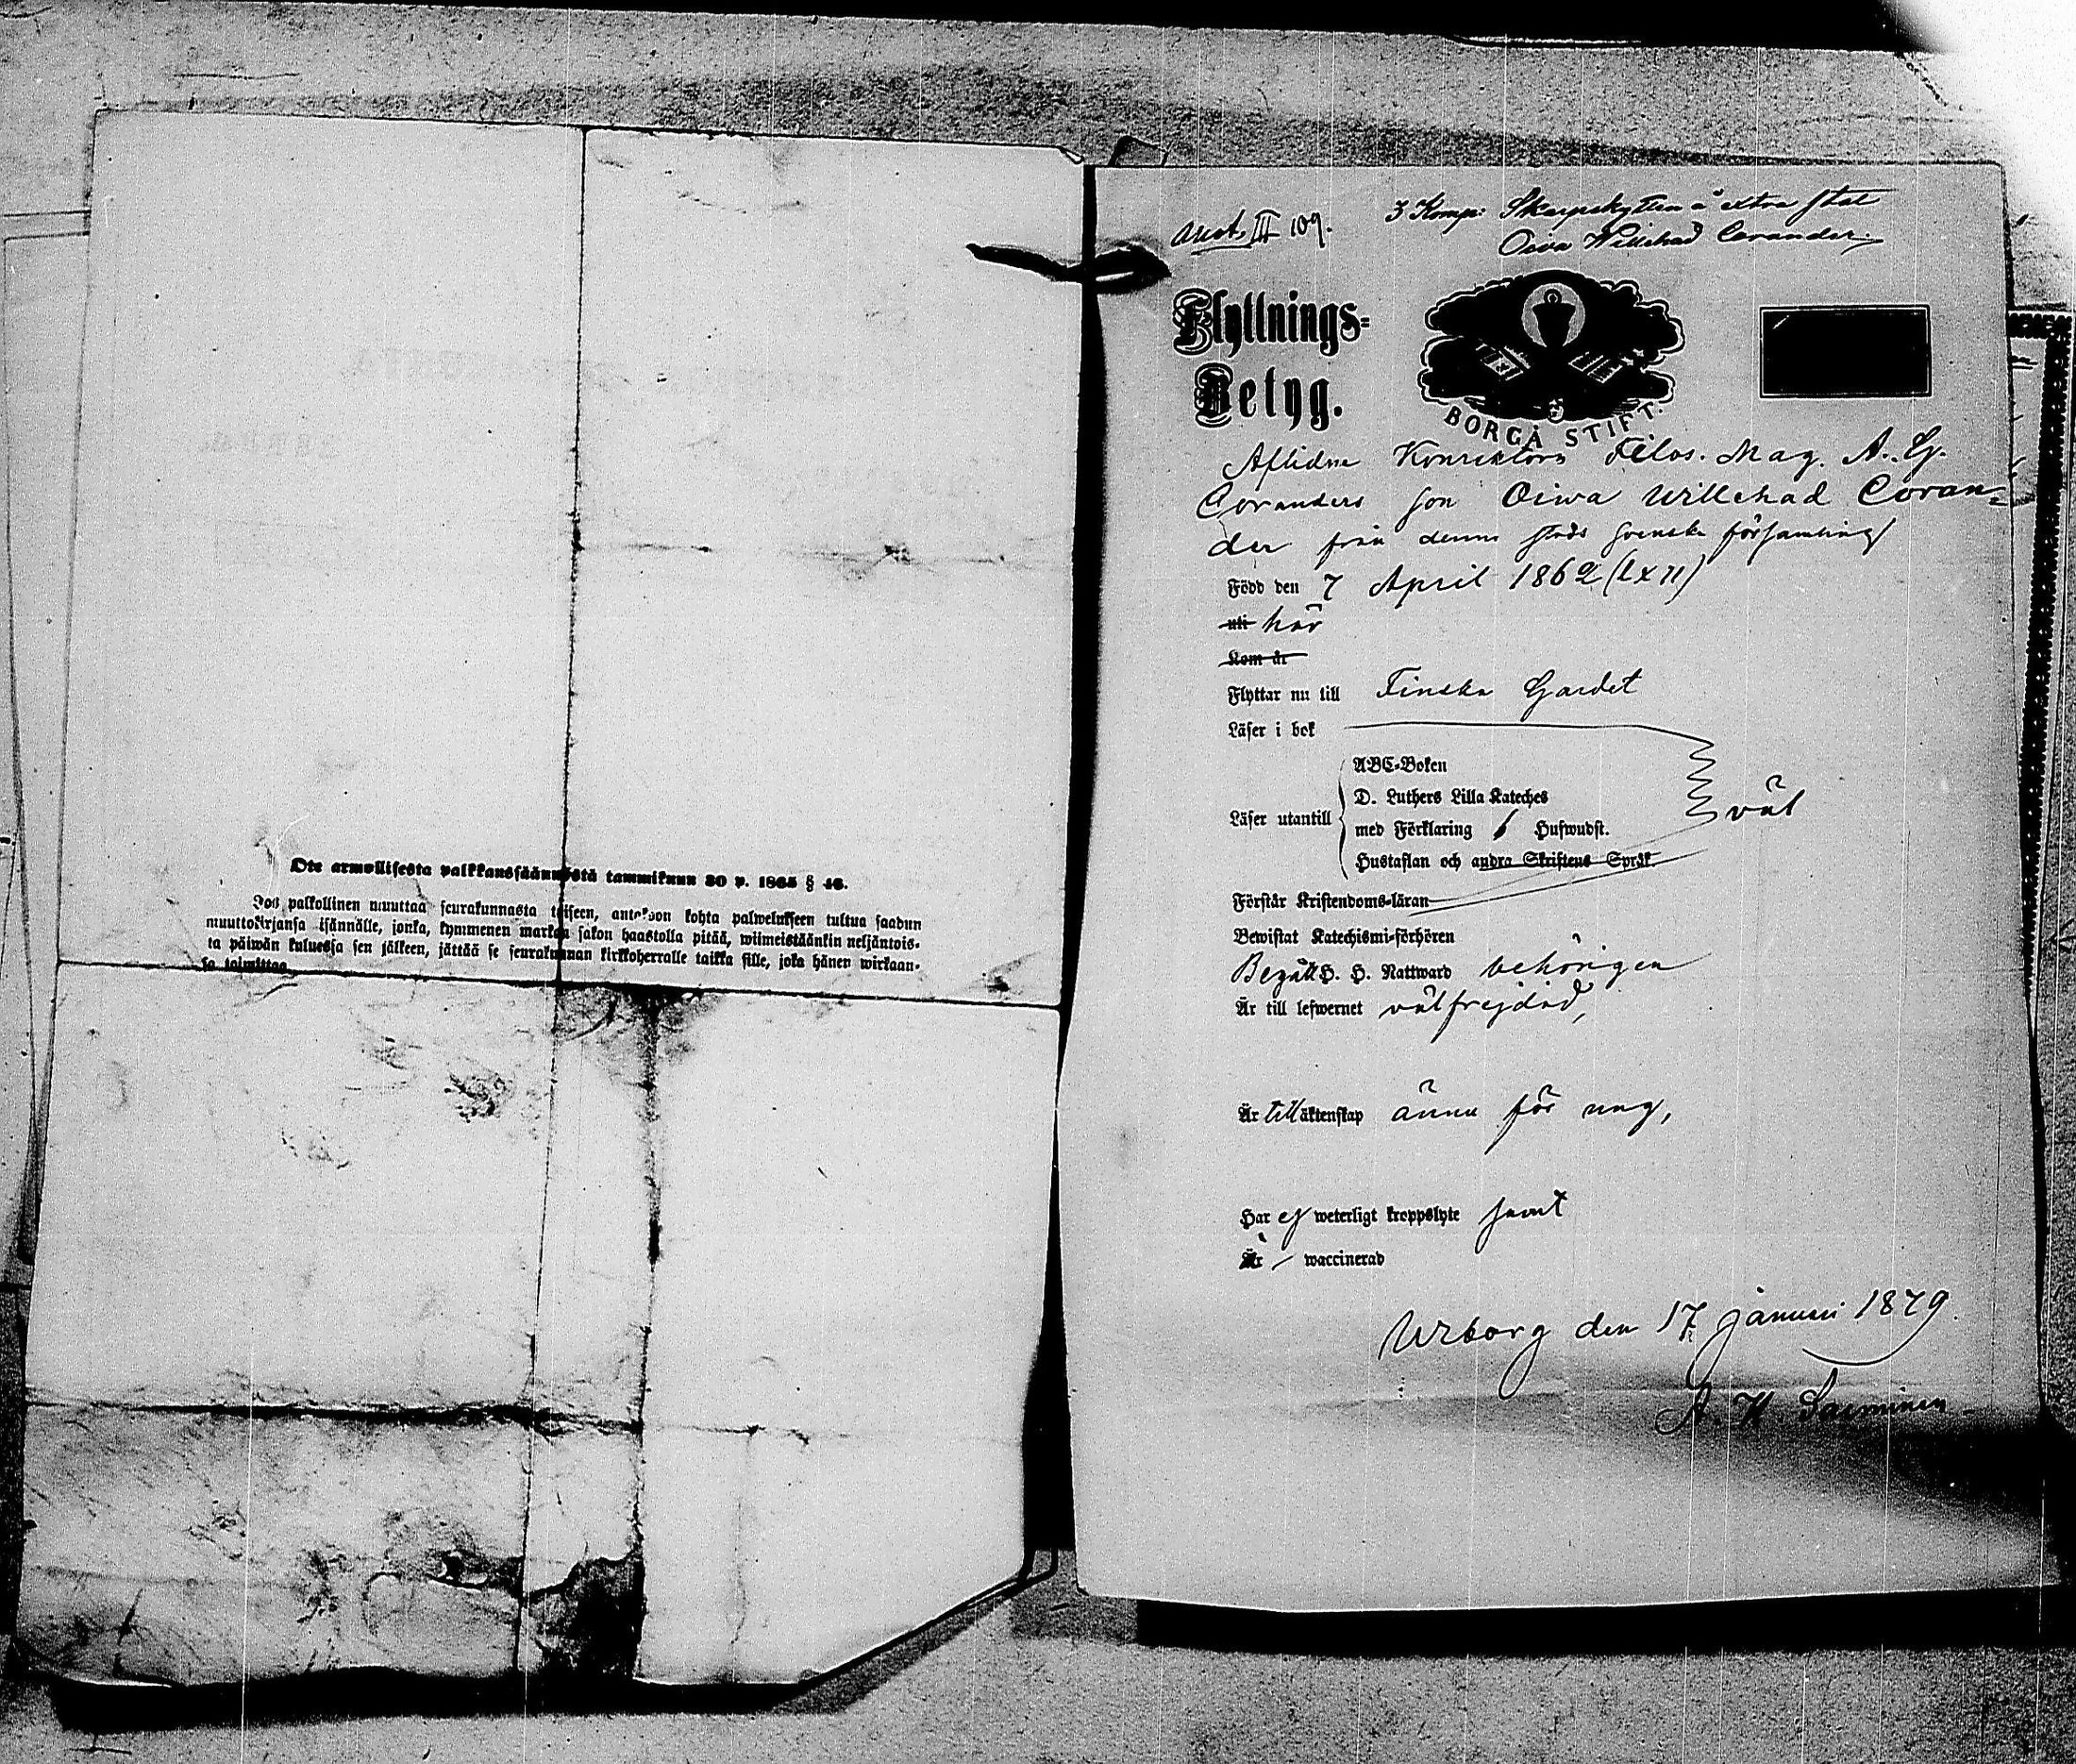 Ote armollisesta palkkaussäännöstä tammikuun 30 p. 1865 § 46.
Jos palkollinen muuttaa seurakunnasta toiseen, antakoon kohta palwelukseen tultua saadun
muuttokirjansa isännälle, jonka, kymmenen markan sakon haastolla pitää, wiimeistäänkin neljäntois-
ta päiwän kuluessa sen jälkeen, jättää se seurakunnan kirkkoherralle taikka sille, joka hänen wirkaan-
sa toimittaa.
anot. III 109.
3 Komp: Skarpskytten å extra stat
Oiva Willehad Corander.
Flyttnings-
Betyg.
BORGÅ STIFT.
Aflidne Konrektorn Filos. Mag. A. G.
Coranders son Oiwa Willehad Coran-
der från denna stads svenska församling
Född den 7 April 1862 (lxii)
uti här
Kom år
Flyttar nu till Finska Gardet
Läser i bok
ABC-Boken
D. Luthers Lilla Kateches
Läser utantill
med Förklaring 6 Hufwudst.
väl
Hustaflan och andra Skriftens Språk.
Förstår Kristendoms-läran
Bewistat Katechismi-förhören
Begått H. H. Nattward behörigen
Är till lefwernet välfrejdad,
Är till äktenskap ännu för ung,
Har ej weterligt kroppslyte samt
Är waccinerad
Wiborg den 17 januari 1879.
A. K.